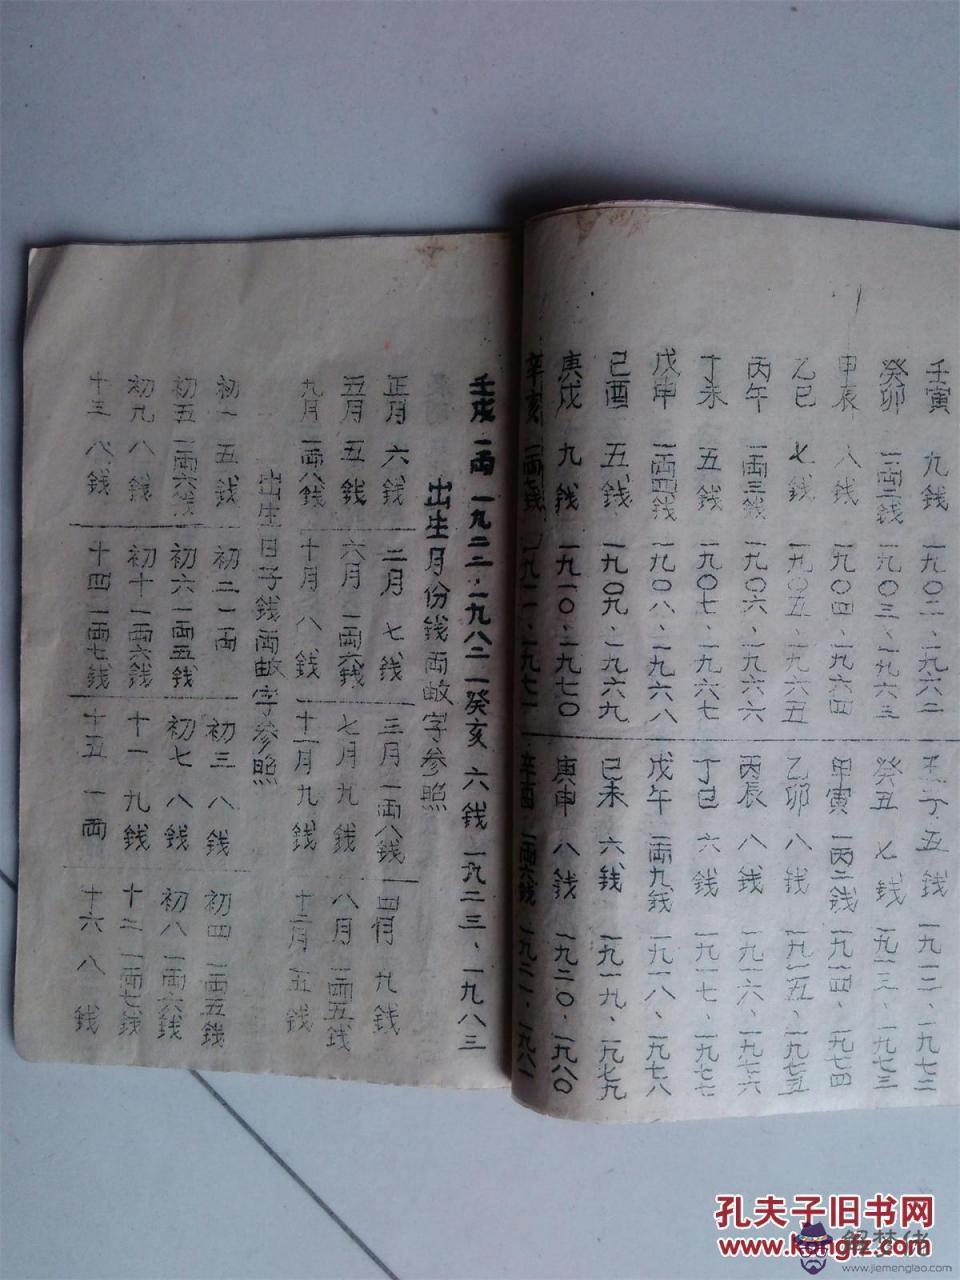 壬寅 九銭 一九〇二、一九六二 壬子 五銭 一九一二、一九七二
癸卯 一両二銭 一九〇三、一九六三 癸丑 七銭 一九一三、一九七三
甲辰 八銭 一九〇四、一九六四 甲寅 一两二銭 一九一四、一九七四
乙巳 七銭 一九〇五 一九六五 乙卯 八銭 一九一五、一九七五
丙午 一両三銭 一九〇六、一九六六 丙辰 八銭 一九一六、一九七六
丁未 五銭 一九〇七、一九六七 丁巳 六銭 一九一七、一九七七
戊申 一両四銭 一九〇八、一九六八 戊午 一両九銭 一九一八、一九七八
己酉 五銭 一九〇九、一九六九 己未 六銭 一九一九、一九七九
庚戌 九銭 一九一〇、一九七〇 庚申 八銭 一九二〇、一九八〇
辛亥 一両七銭 一九一一、一九七一 辛酉 一両六銭 一九二一、一九八一
壬戌 一両 一九二二、一九八二 癸亥 六銭 一九二三、一九八三
出生月份銭両字参照
正月 六銭 二月 七銭 三月 一両八銭 四月 九銭
五月 五銭 六月 一両六銭 七月 九銭 八月 一両五銭
九月 一両八銭 十月 八銭 十一月 九銭 十二月 五銭
出生日子銭両字参照
初一 五銭 初二 一両 初三 八銭 初四 一両五銭
初五 一両六銭 初六 一両五銭 初七 八銭 初八 一両六銭
初九 八銭 初十 一両六銭 十一 九銭 十二 一両七銭
十三 八銭 十四 一両七銭 十五 一両 十六 八銭
孔夫子旧书网
www.kongfz.com
解梦佬
www.jiemenglao.com